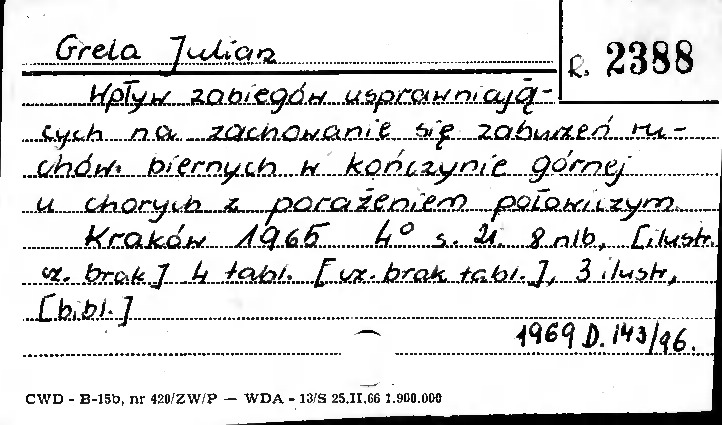 Grela Julian
R. 2388
Wpływ zabiegów usprawniają-
cych na zachowanie się zaburzeń ru-
chów biernych w kończynie górnej
u chorych z porażeniem połowiczym
Kraków 1965 4° s. 21. 8 nlb, [ilustr.
cz. brak] 4 tabl. [cz. brak tabl.], 3 ilustr,
[bibl.]
1969 D. 143/96.
CWD - B-15b, nr 420/ZW/P — WDA - 13/S 25.II.66 1.900.000